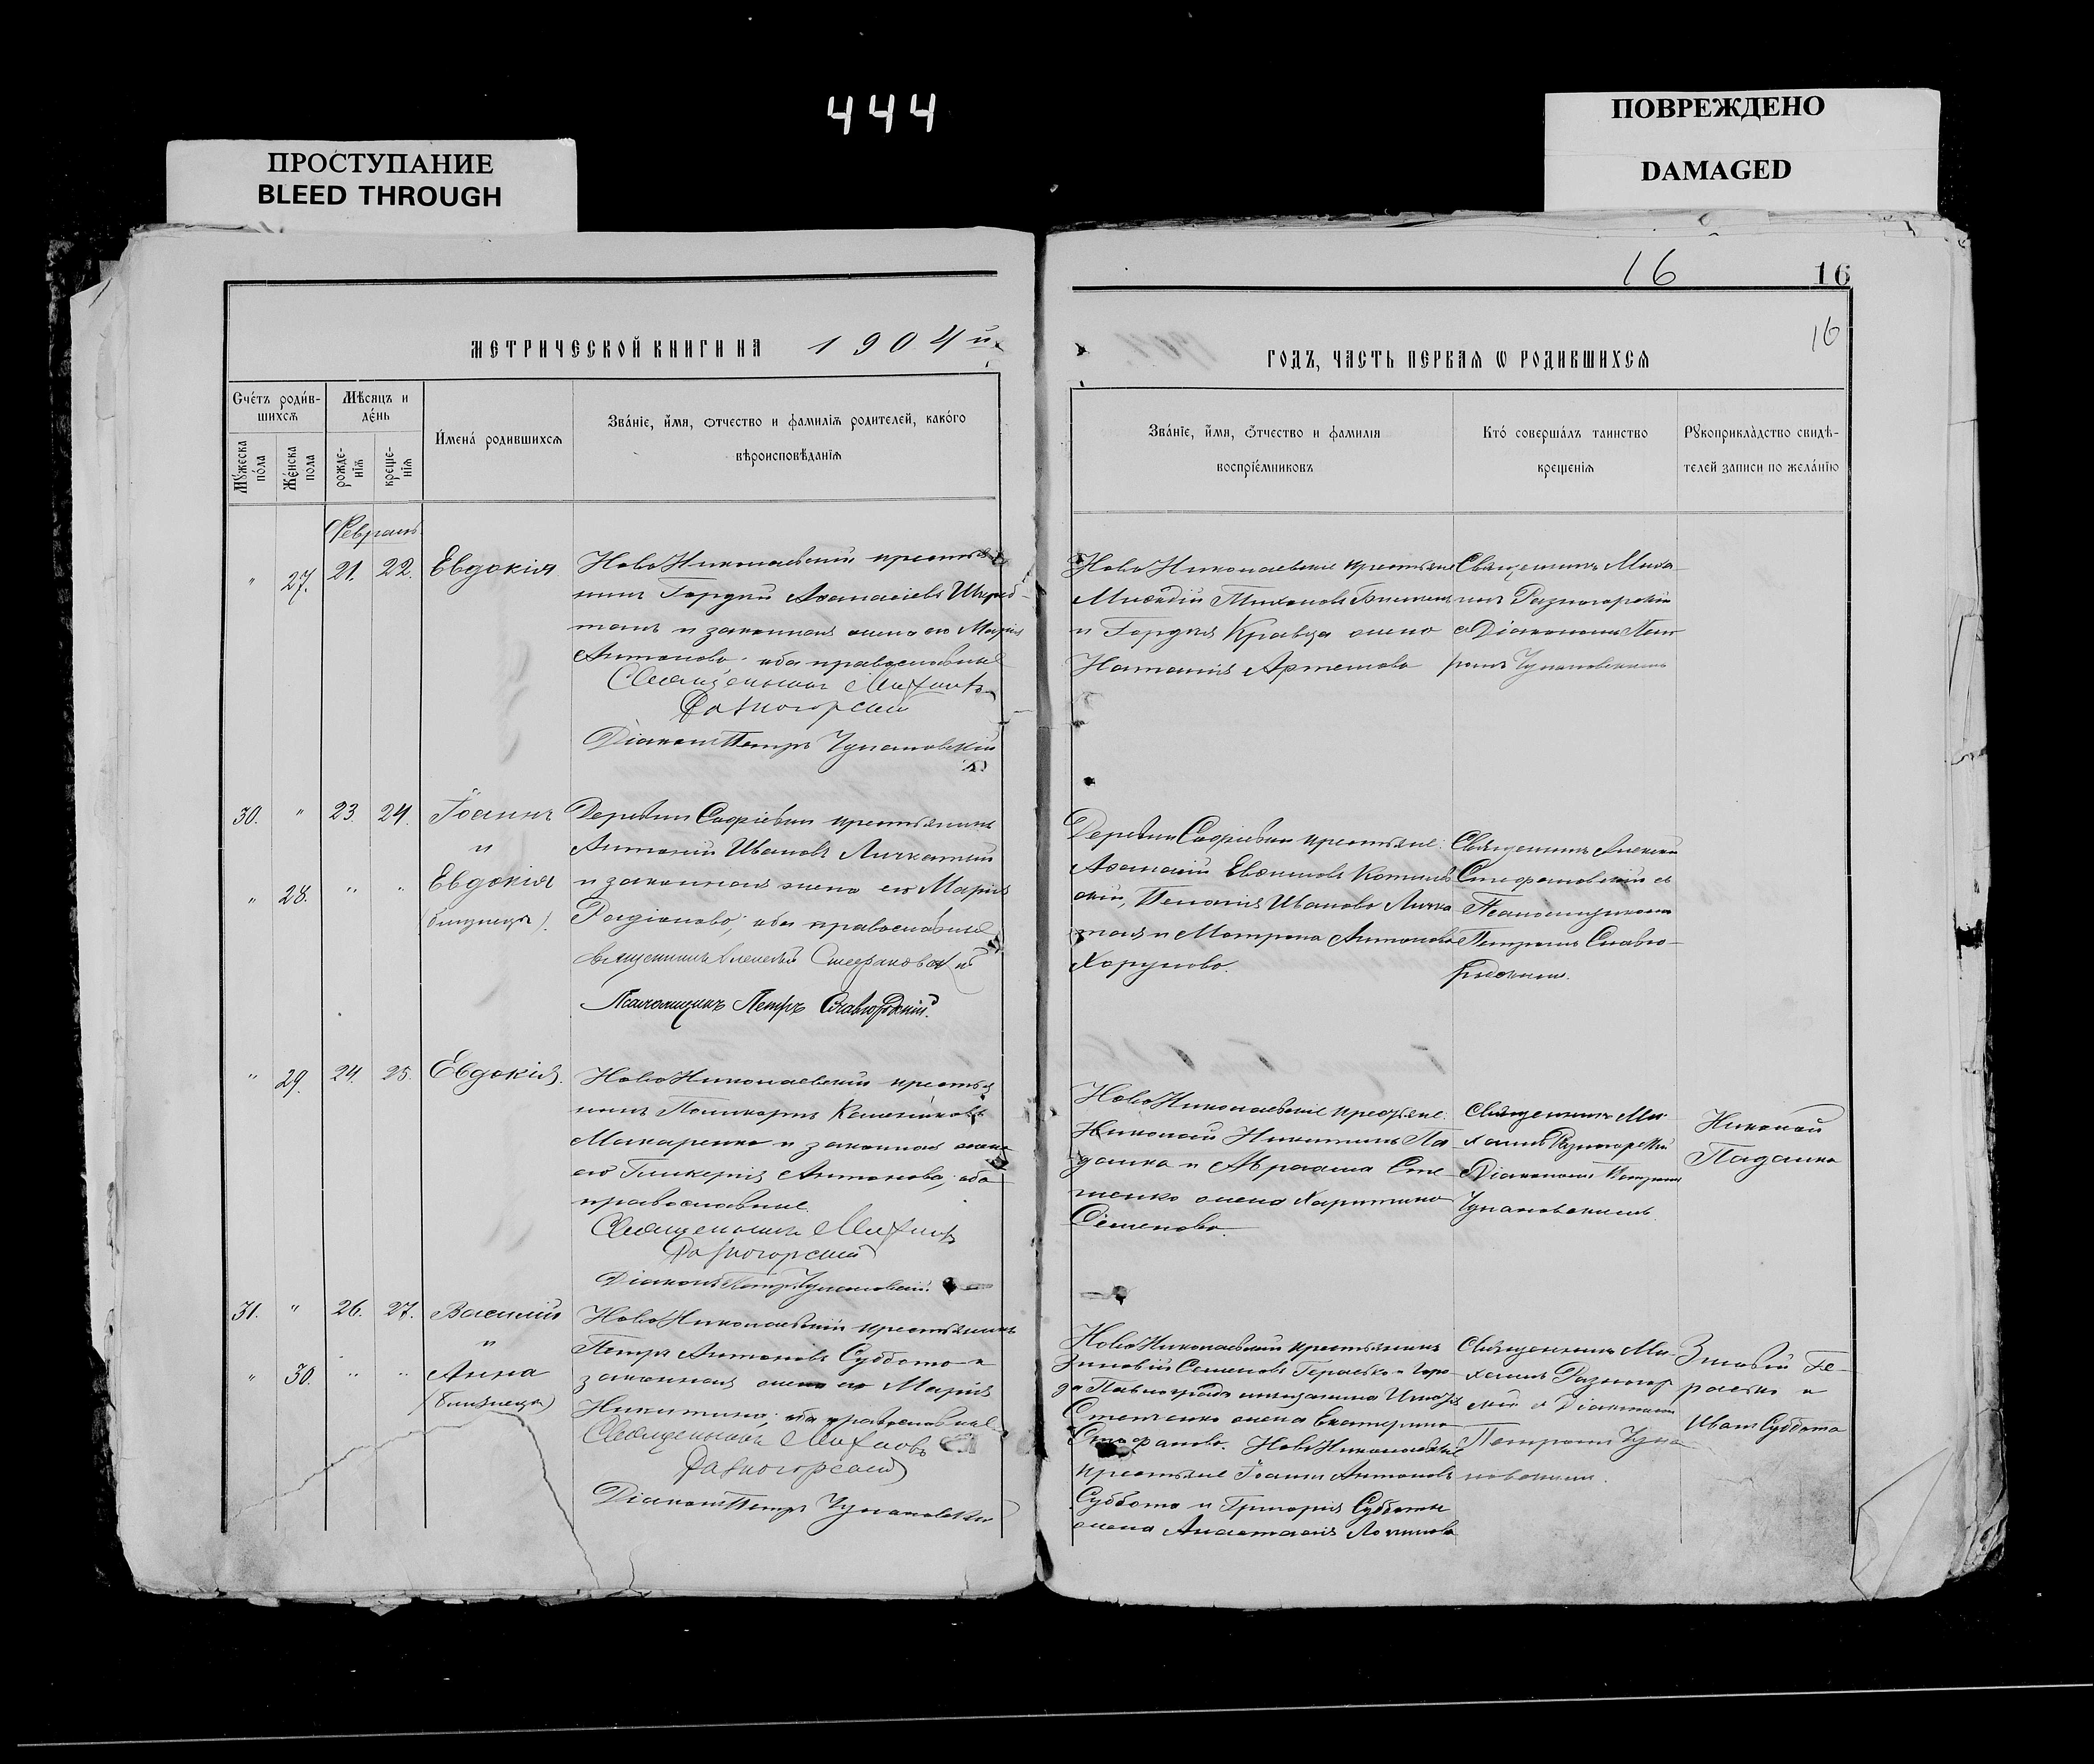 444
ПРОСТУПАНИЕ
BLEED THROUGH
ПОВРЕЖДЕНО
DAMAGED
16
16
16
МЕТРИЧЕСКОЙ КНИГИ НА 1904 й
ГОДЪ, ЧАСТЬ ПЕРВАѦ Ѡ РОДИВШИХСѦ
Счéтъ роди́в-
шихсѧ
Мѣ́сяцъ и
де́нь
Мꙋ́жеска
по́ла
Же́нска
пола
рожде-
нїѧ
креще-
нїѧ
И҆мена̀ родившихсѧ
Зва́нїе, и҆́мя, ѻтчество и фамилїѧ родителей, како́го
вѣроисповѣ́данїѧ
Зва́нїе, и҆́мя, ѻ҆́тчество и фамилїя
воспрїе́мниковъ
Кто̀ соверша́лъ таинство
крещенїѧ
Рꙋкоприкла́дство свидѣ-
телей записи по жела́нїю
Февраль
" 27. 21. 22. Евдокія
Ново Николаевскій крестья
нинъ Гордій Аѳанасіевъ
и законная жена его Марія
Антонова, оба православные
Священникъ Михаилъ
Разногорскій
Діаконъ Петръ Чулановскій
Ново Николаевскіе крестьяне
Тихоновъ
и Гордія Кравца жена
Наталія Артемова
Священникъ Миха-
илъ Разногорскій
съ Діакономъ Пет
ромъ Чулановскимъ
30. " 23. 24. Іоаннъ
и
" 28. " " Евдокія
(близнецы).
Деревни Софіевки крестьянинъ
Антоній Ивановъ Личкатый
и законная жена его Марія
Родіонова, оба православные
Священникъ Алексій Стефановскій
Псаломщикъ Петръ Славгородскій.
Деревни Софіевки крестьяне:
Аѳанасій Евѳимовъ
Пелагія Иванова Личка
тая и Матрона Антонова
Харунова.
Священникъ Алексій
Стефановскій съ
Псаломщикомъ
Петромъ Славго-
родскимъ.
" 29. 24. 25. Евдокія.
Ново Николаевскій крестья
нинъ Поликарпъ
Макаренко и законная жена
его Гликерія Антонова, оба
православные.
Священникъ Михаилъ
Разногорскій
Діаконъ Петръ Чулановскій.
Ново Николаевскіе крестьяне:
Николай Никитинъ Па
далка и Авраама Сте
ценко жена Харитина
Семенова.
Священникъ Ми
хаилъ Разногорскій
съ Діакономъ Петромъ
Чулановскимъ.
Николай
Падалка
31. " 26. 27. Василій
и
" 30. " " Анна
(близнецы)
Ново Николаевскій крестьянинъ
Петръ Антоновъ Суббота и
законная жена его Марія
Никитина, оба православные
Священникъ Михаилъ
Разногорскій
Діаконъ Петръ Чулановскій
Ново Николаевскій крестьянинъ
Зиновій Семеновъ Гераско и горо
да Павлограда мещанина
жена Екатерина
Стефанова. Ново Николаевскіе
крестьяне Іоаннъ Антоновъ
Суббота и Григорія Субботы
жена Анастасія Логинова
Священникъ Ми-
хаилъ Разногор
скій съ Діакономъ
Петромъ Чула
новскимъ.
Зиновій Ге-
раско и
Иванъ Суббота